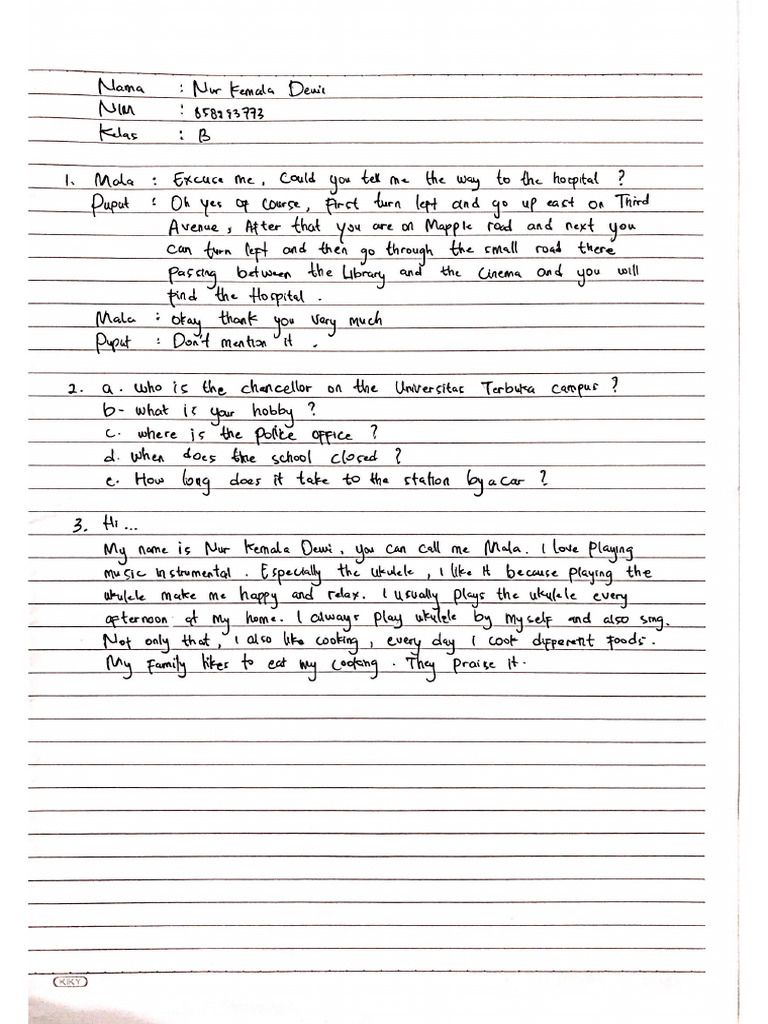 Nama : Nur Kemala Dewi
NIM : 858293773
Kelas : B
1. Mala : Excuse me, Could you tell me the way to the hospital ?
Puput : Oh yes of course, first turn left and go up east on Third
Avenue, After that you are on Mapple road and next you
can turn left and then go through the small road there
passing between the Library and the Cinema and you will
find the Hospital.
Mala : okay thank you very much
Puput : Don't mention it.
2. a. who is the chancellor on the Universitas Terbuka campus ?
b- what is your hobby ?
c. where is the police office ?
d. when does the school closed ?
e. How long does it take to the station by a car ?
3. Hi...
My name is Nur Kemala Dewi, you can call me Mala. I love playing
music instrumental. Especially the ukulele, I like it because playing the
ukulele make me happy and relax. I usually plays the ukulele every
afternoon at my home. I always play ukulele by myself and also sing.
Not only that, I also like cooking, every day I cook different foods.
My family likes to eat my cooking. They praise it.
KIKY